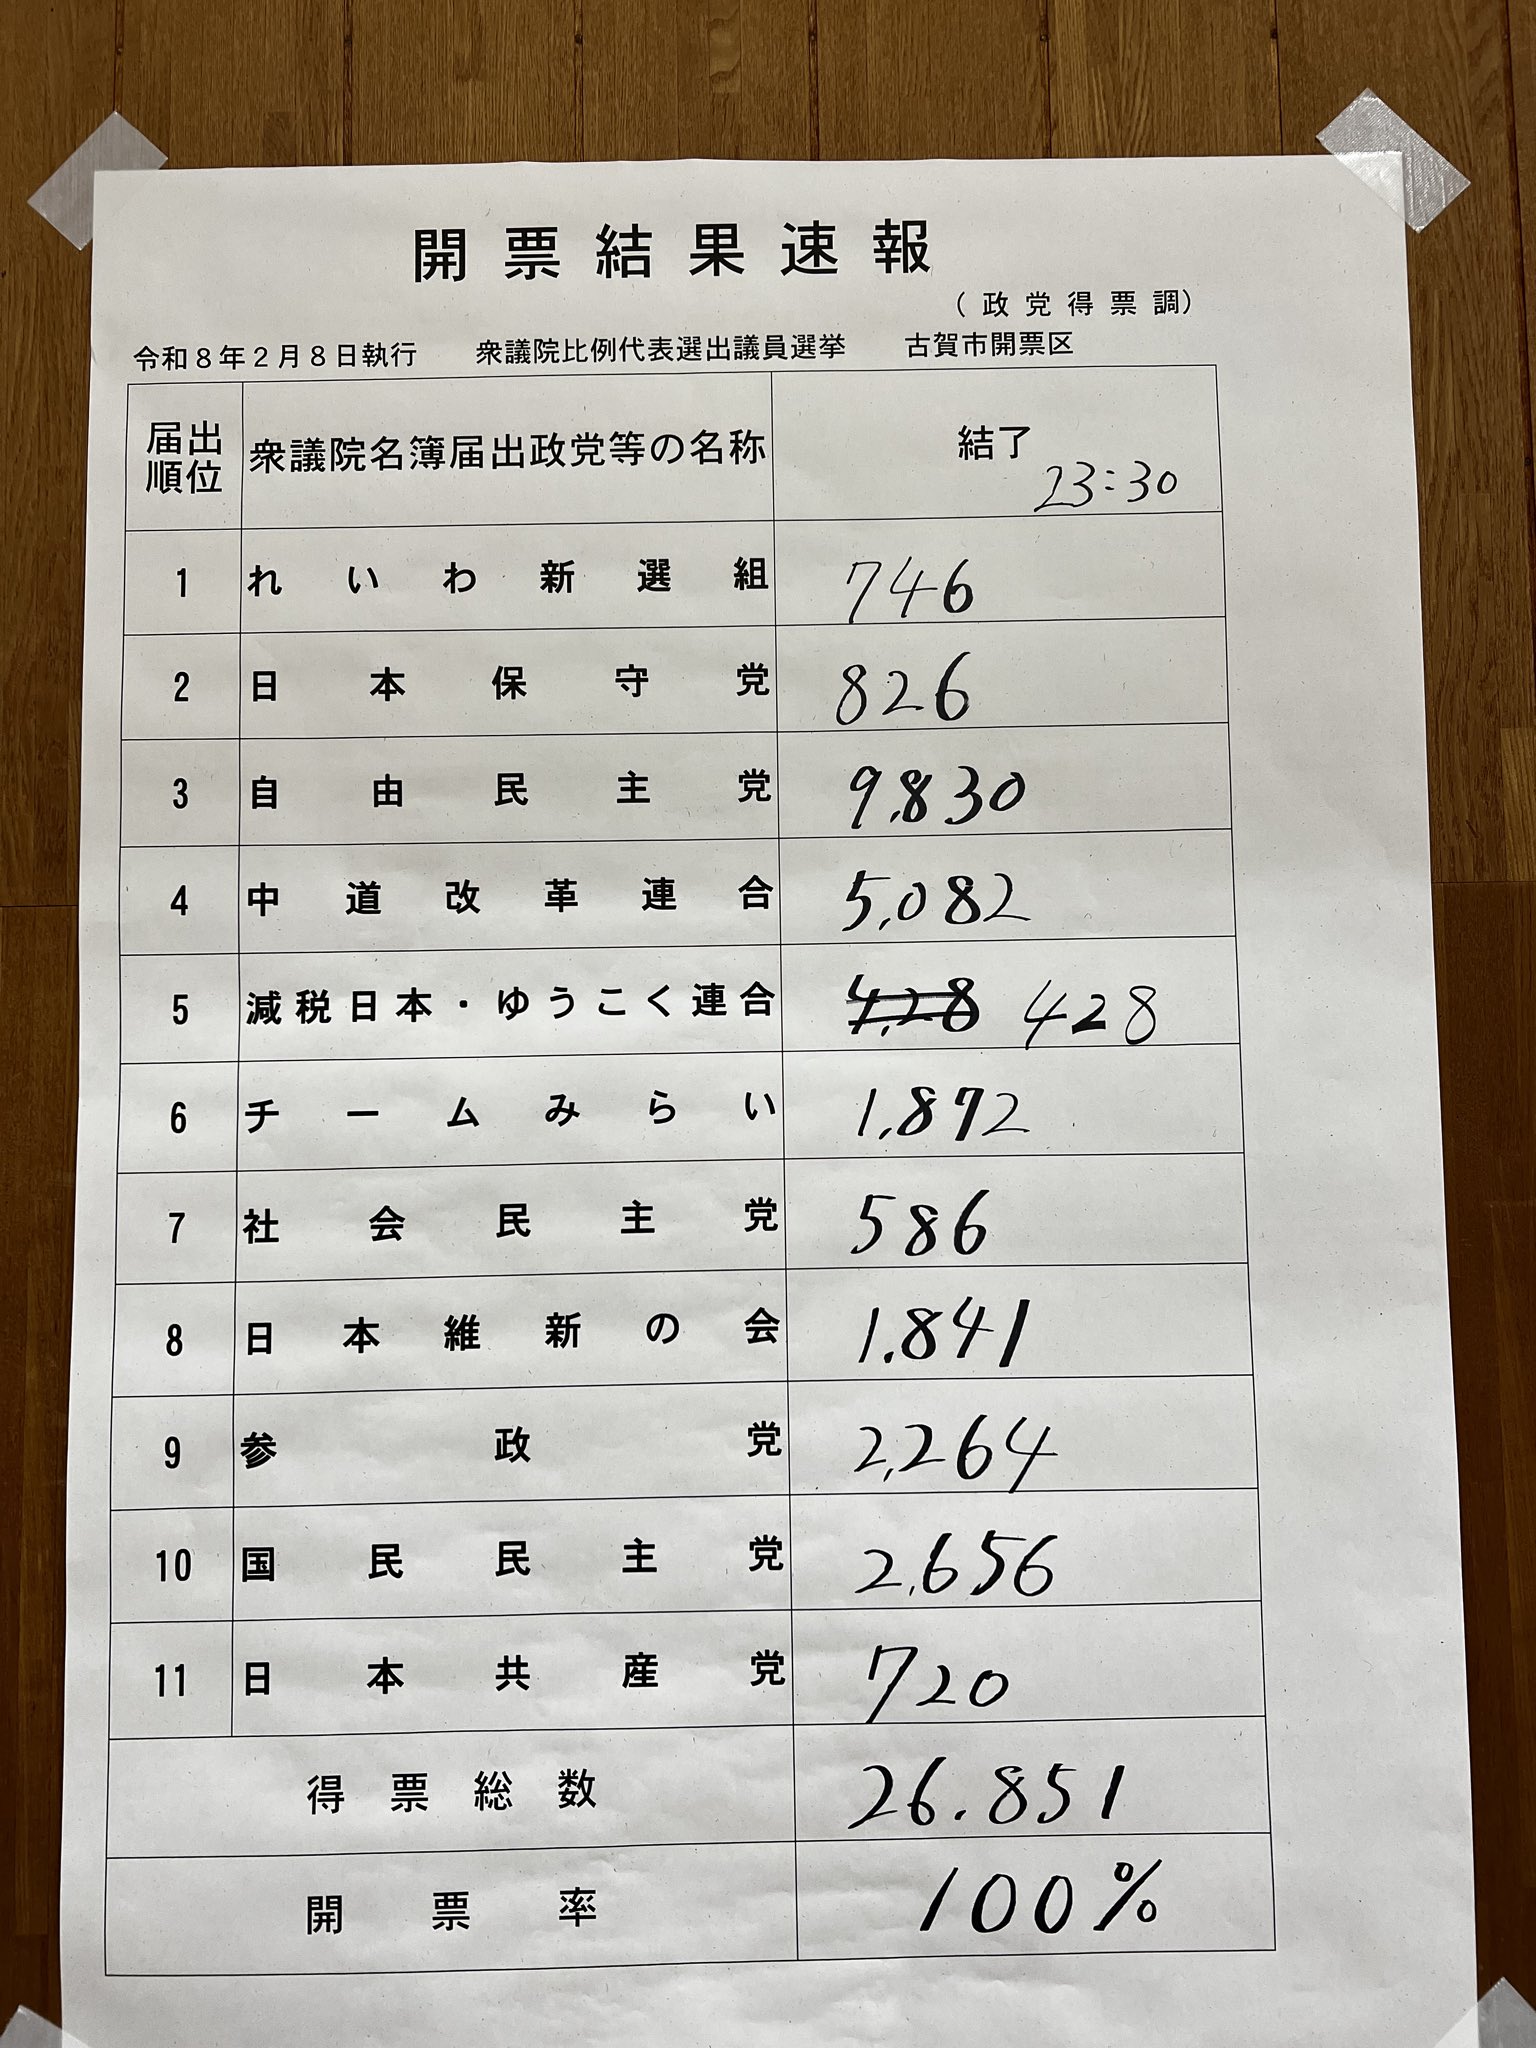 開票結果速報
（政党得票調）
令和８年２月８日執行 衆議院比例代表選出議員選挙 古賀市開票区
届出順位 衆議院名簿届出政党等の名称 結了 23:30
1 れいわ新選組 746
2 日本保守党 826
3 自由民主党 9,830
4 中道改革連合 5,082
5 減税日本・ゆうこく連合 4,28 428
6 チームみらい 1,872
7 社会民主党 586
8 日本維新の会 1.841
9 参政党 2,264
10 国民民主党 2,656
11 日本共産党 720
得票総数 26.851
開票率 100%